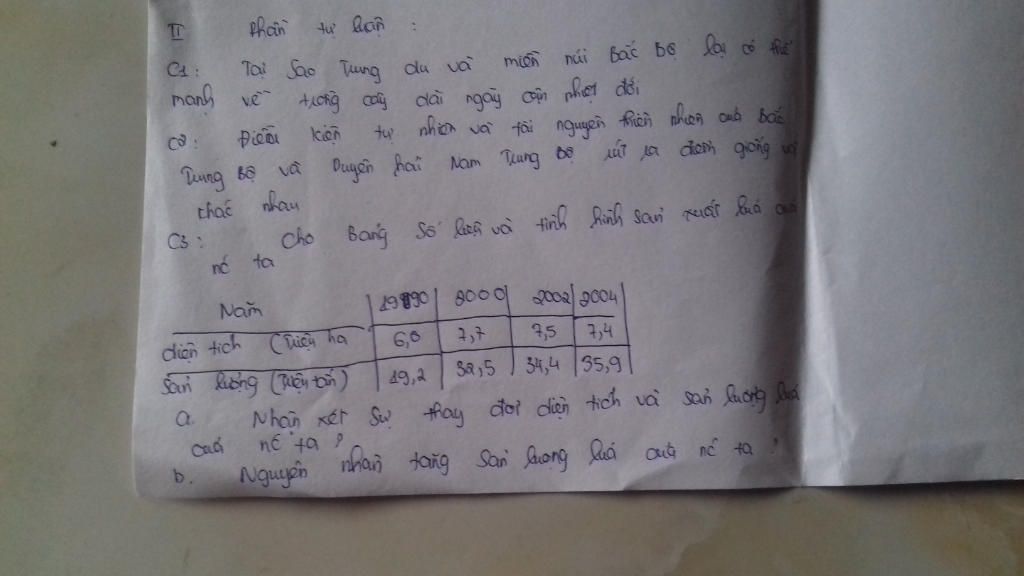 II Phần tự luận :
C1 : Tại sao Trung du và miền núi Bắc Bộ lại có thế
mạnh về trồng cây dài ngày cận nhiệt đới
C2 : Điều kiện tự nhiên và tài nguyên thiên nhiên của Bắc
Trung Bộ và Duyên hải Nam Trung Bộ rút ra điểm giống và
khác nhau
C3 : Cho Bảng số liệu và tình hình sản xuất lúa của
nc ta
Năm 1990 2000 2002 2004
diện tích (Triệu ha 6,0 7,7 7,5 7,4
Sản lượng (Triệu tấn) 19,2 32,5 34,4 35,9
a. Nhận xét sự thay đổi diện tích và sản lượng lúa
của nc ta ?
b. Nguyên nhân tăng sản lượng lúa của nc ta ?